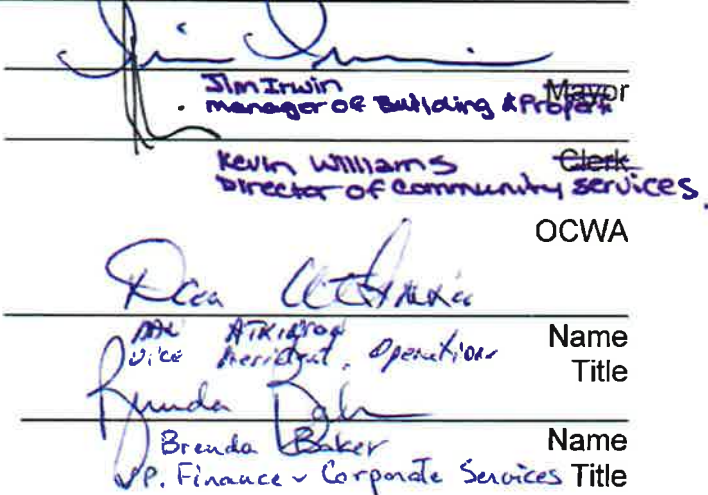 Jim Irwin Mayor
manager of Building & Propert
Kevin Williams Clerk
Director of Community Services.
OCWA
Name
Vice President, Operations Title
Brenda Baker Name
VP. Finance & Corporate Services Title